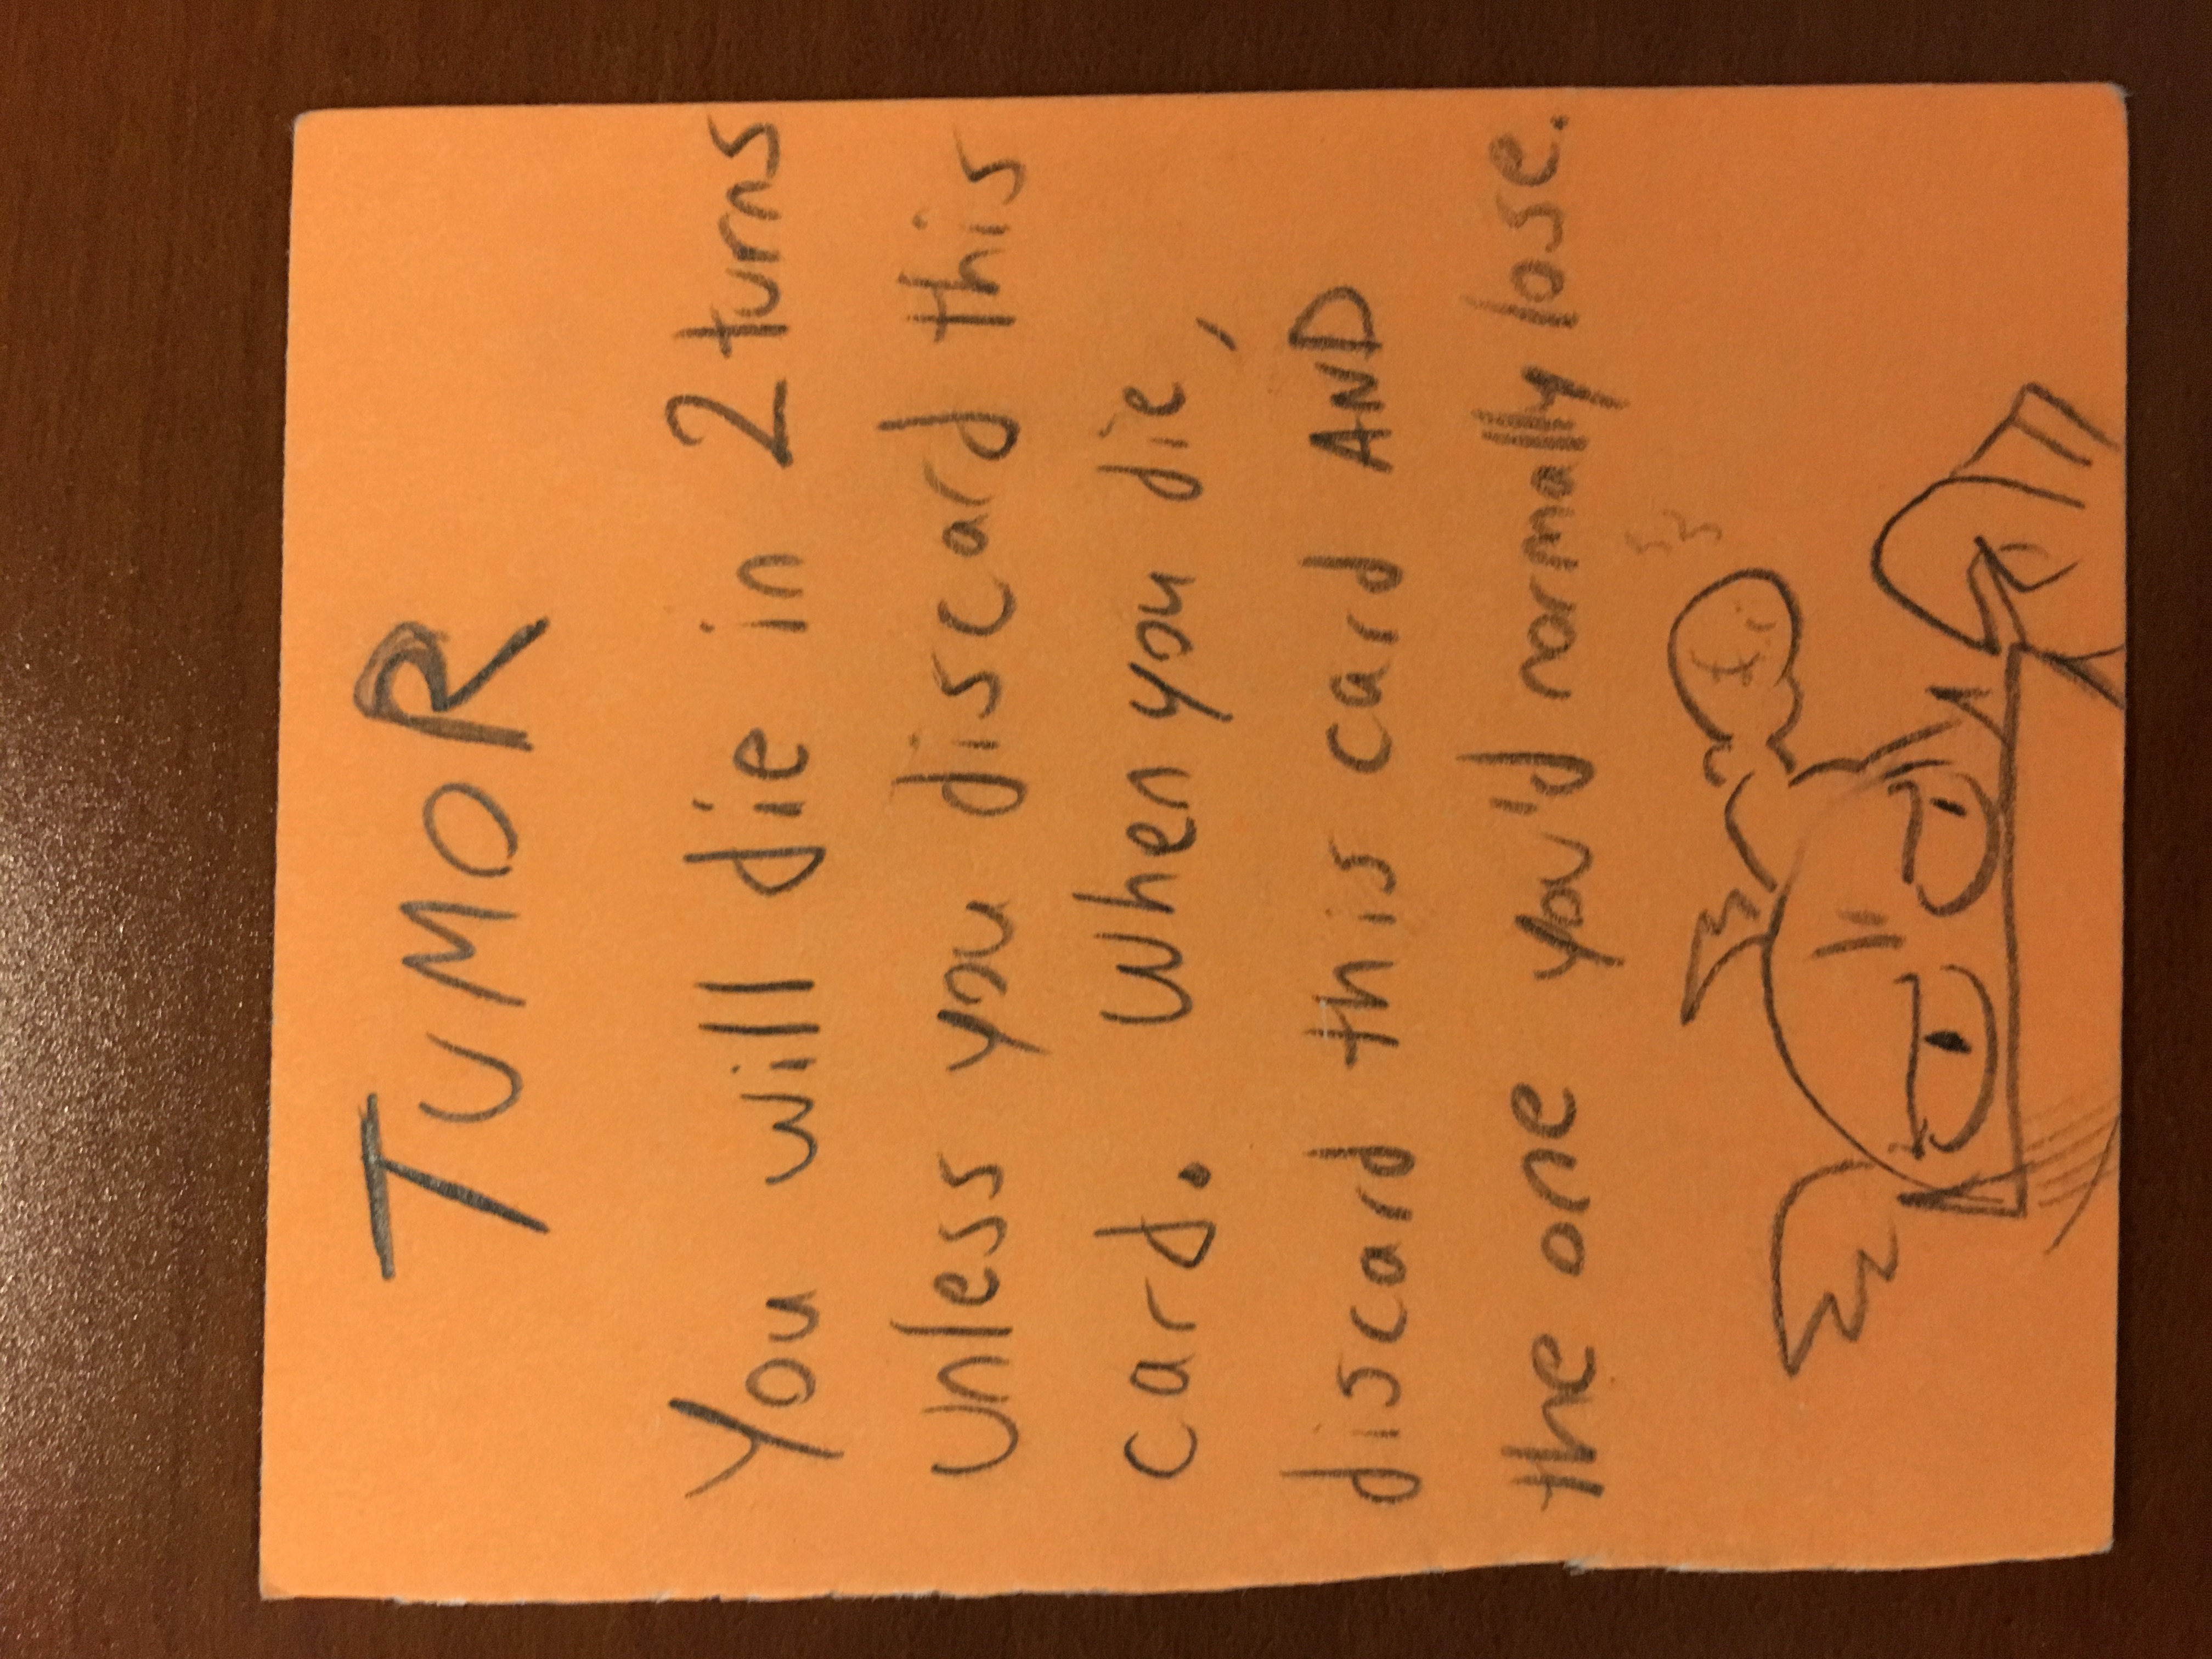 TUMOR
You will die in 2 turns
unless you discard this
card. When you die,
discard this card AND
the one you'd normally lose.